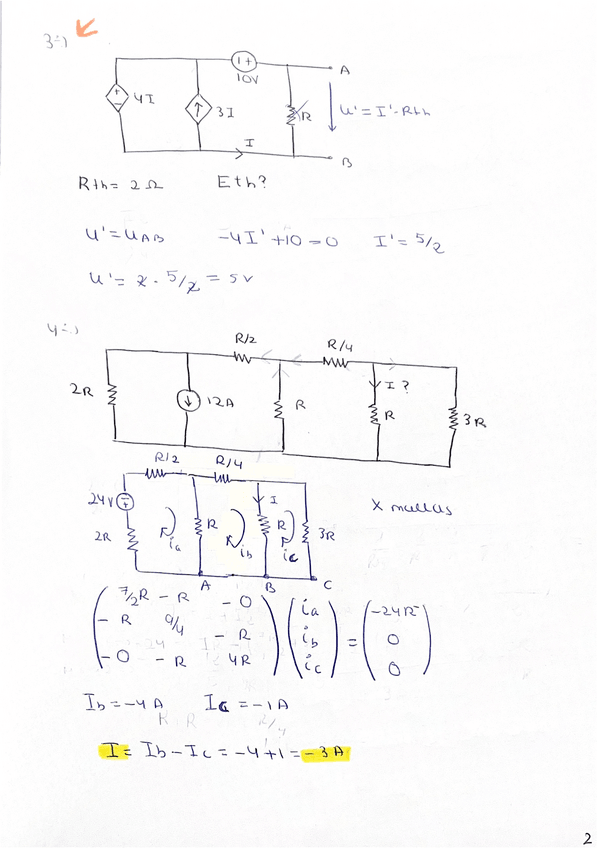 3÷)
1+
10V
A
4I
3I
R
U' = I'·Rth
I
B
Rth = 2 Ω Eth?
U' = UAB -4I' + 10 = 0 I' = 5/2
U' = 2 · 5/2 = 5V
4÷)
R/2
R/4
2R
12A
R
I ?
R
3R
R/2 R/4
24V
I
2R
R
R
3R
ia
ib
ic
X mallas
A B C
7/2R - R - 0 ia -24R
- R 9/4 - R ib = 0
- 0 - R 4R ic 0
Ib = -4 A Ic = -1 A
I = Ib - Ic = -4 + 1 = -3 A
2